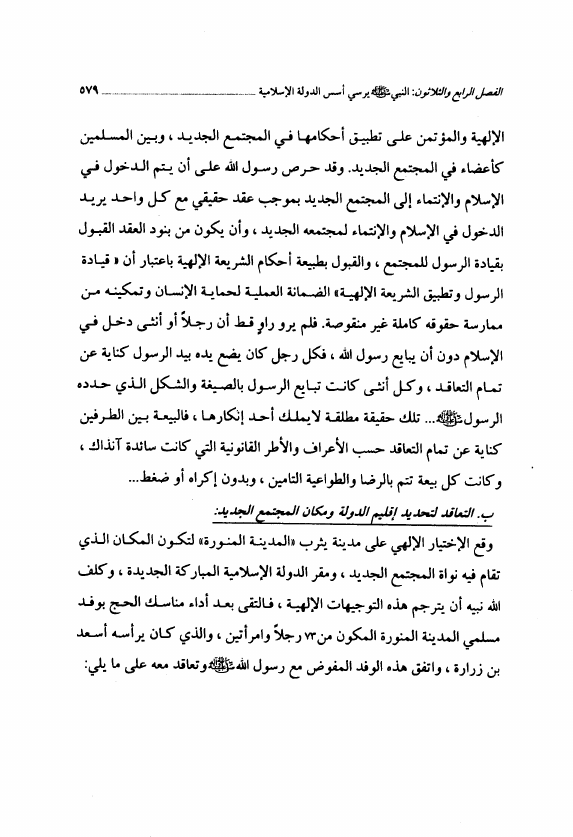 الفصل الرابع والثلاثون: النبي ﷺ يرسي أسس الدولة الإسلامية ــــــــــــــــــــ ٥٧٩
الإلهية والمؤتمن على تطبيق أحكامها في المجتمع الجديد ، وبين المسلمين
كأعضاء في المجتمع الجديد. وقد حرص رسول الله على أن يتم الدخول في
الإسلام والإنتماء إلى المجتمع الجديد بموجب عقد حقيقي مع كل واحد يريد
الدخول في الإسلام والإنتماء لمجتمعه الجديد ، وأن يكون من بنود العقد القبول
بقيادة الرسول للمجتمع ، والقبول بطبيعة أحكام الشريعة الإلهية باعتبار أن « قيادة
الرسول وتطبيق الشريعة الإلهية» الضمانة العملية لحماية الإنسان وتمكينه من
ممارسة حقوقه كاملة غير منقوصة. فلم يرو راوٍ قط أن رجلاً أو أنثى دخل في
الإسلام دون أن يبايع رسول الله ، فكل رجل كان يضع يده بيد الرسول كناية عن
تمام التعاقد ، وكل أنثى كانت تبايع الرسول بالصيغة والشكل الذي حدده
الرسول ﷺ... تلك حقيقة مطلقة لا يملك أحد إنكارها ، فالبيعة بين الطرفين
كناية عن تمام التعاقد حسب الأعراف والأطر القانونية التي كانت سائدة آنذاك ،
وكانت كل بيعة تتم بالرضا والطواعية التامين ، وبدون إكراه أو ضغط...
ب. التعاقد لتحديد إقليم الدولة ومكان المجتمع الجديد:
وقع الإختيار الإلهي على مدينة يثرب «المدينة المنورة» لتكون المكان الذي
تقام فيه نواة المجتمع الجديد ، ومقر الدولة الإسلامية المباركة الجديدة ، وكلف
الله نبيه أن يترجم هذه التوجيهات الإلهية ، فالتقى بعد أداء مناسك الحج بوفد
مسلمي المدينة المنورة المكون من ٧٣ رجلاً وامرأتين ، والذي كان يرأسه أسعد
بن زرارة ، واتفق هذه الوفد المفوض مع رسول الله ﷺ وتعاقد معه على ما يلي: